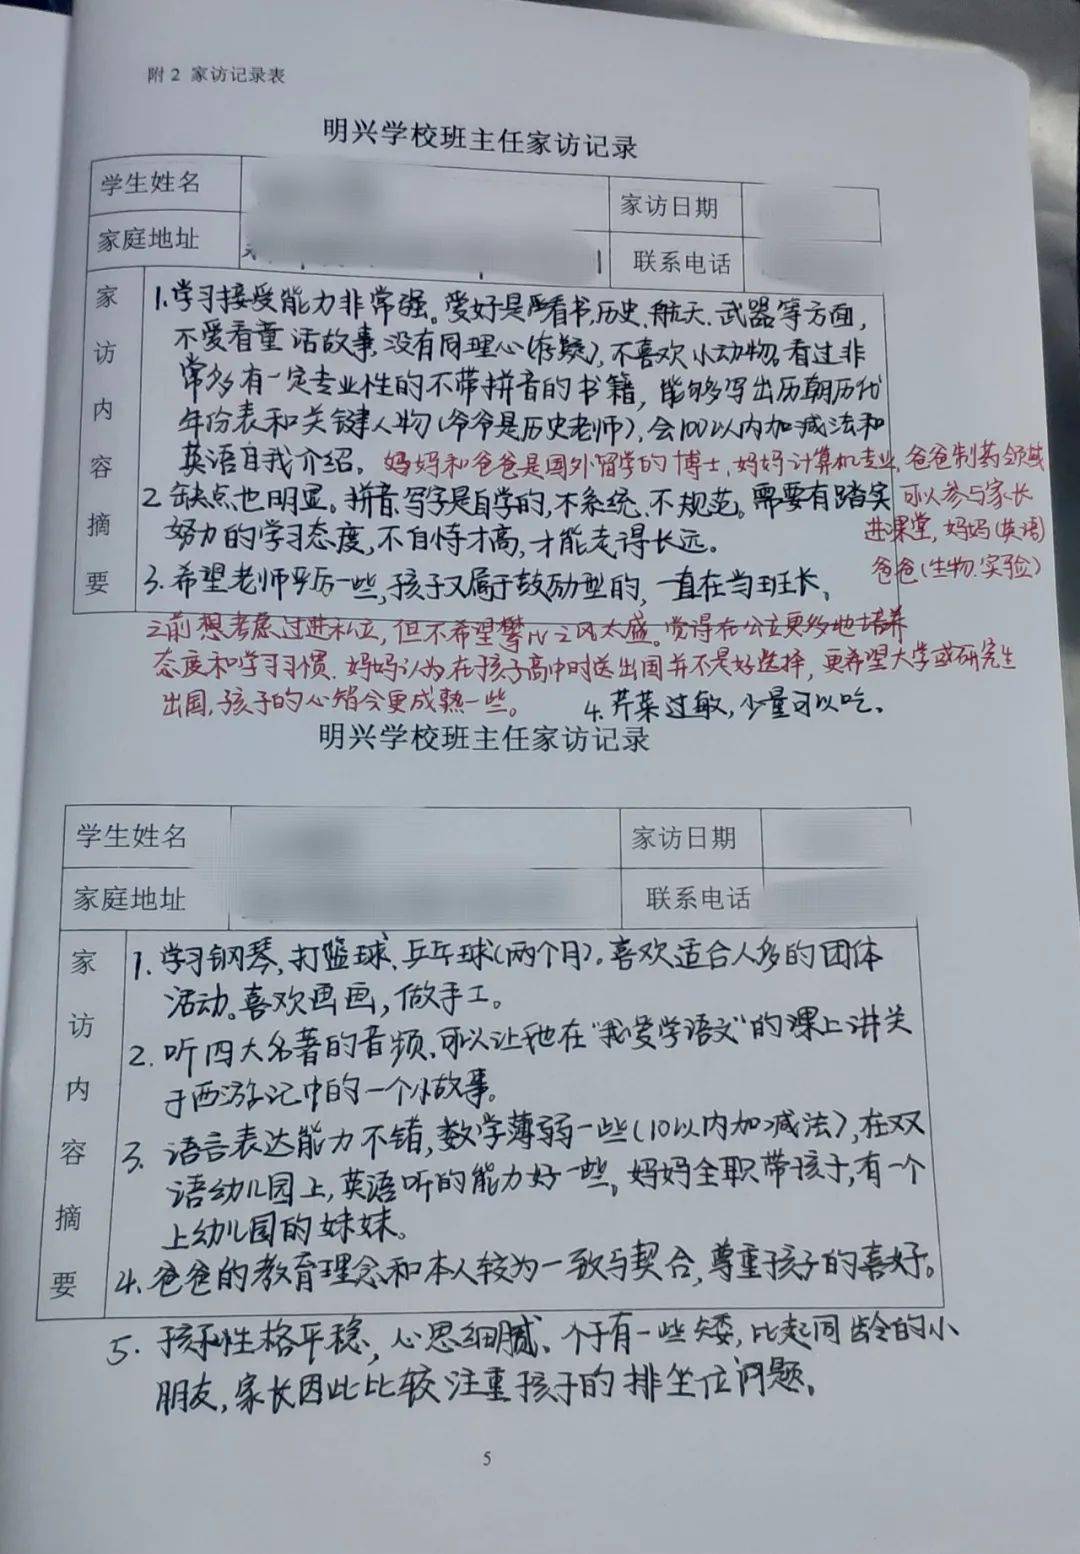 附2 家访记录表
明兴学校班主任家访记录
学生姓名
家访日期
家庭地址
联系电话
家访内容摘要
1.学习接受能力非常强。爱好是看书,历史.航天.武器等方面,
不爱看童话故事,没有同理心(存疑),不喜欢小动物。看过非
常多有一定专业性的不带拼音的书籍,能够写出历朝历代
年份表和关键人物(爷爷是历史老师),会100以内加减法和
英语自我介绍。妈妈和爸爸是国外留学的博士,妈妈计算机专业,爸爸制药领域
可以参与家长
进课堂,妈妈(英语)
爸爸(生物.实验)
2.缺点也明显。拼音.写字是自学的,不系统.不规范。需要有踏实
努力的学习态度,不自恃才高,才能走得长远。
3.希望老师严厉一些,孩子又属于鼓励型的,一直在当班长。
之前想考虑过进私立,但不希望攀比之风太盛。觉得在公立更多地培养
态度和学习习惯.妈妈认为在孩子高中时送出国并不是好选择,更希望大学或研究生
出国,孩子的心智会更成熟一些。
4.芹菜过敏,少量可以吃。
明兴学校班主任家访记录
学生姓名
家访日期
家庭地址
联系电话
家访内容摘要
1.学习钢琴,打篮球、乒乓球(两个月)。喜欢适合人多的团体
活动。喜欢画画,做手工。
2.听四大名著的音频,可以让他在“我爱学语文”的课上讲关
于西游记中的一个小故事。
3.语言表达能力不错,数学薄弱一些(10以内加减法),在双
语幼儿园上,英语听的能力好一些。妈妈全职带孩子,有一个
上幼儿园的妹妹。
4.爸爸的教育理念和本人较为一致与契合,尊重孩子的喜好。
5.孩子性格平稳,心思细腻、个子有一些矮,比起同龄的小
朋友,家长因此比较注重孩子的排坐位问题。
5